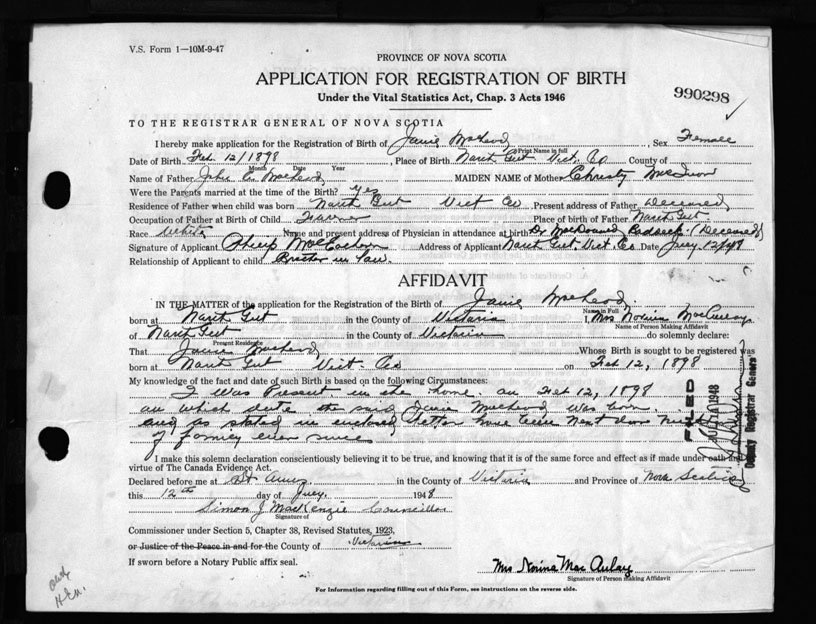 V.S. Form 1—10M-9-47
PROVINCE OF NOVA SCOTIA
APPLICATION FOR REGISTRATION OF BIRTH
Under the Vital Statistics Act, Chap. 3 Acts 1946
990298
TO THE REGISTRAR GENERAL OF NOVA SCOTIA
I hereby make application for the Registration of Birth of Janie MacLeod, Sex Female
Print Name in full
Date of Birth Feb. 12/1898, Place of Birth North Gut Vict. Co County of
Month Date Year
Name of Father John MacLeod MAIDEN NAME of Mother Christy
Were the Parents married at the time of the Birth? Yes
Residence of Father when child was born North Gut Vict Co Present address of Father Deceased
Occupation of Father at Birth of Child Place of birth of Father North Gut
Race White Name and present address of Physician in attendance at birth Dr MacDonald, Baddeck (Deceased)
Signature of Applicant Philip Address of Applicant North Gut, Vict Co Date July 12/48
Relationship of Applicant to child Brother in law.
AFFIDAVIT
IN THE MATTER of the application for the Registration of Birth of Janie MacLeod
Name in Full
born at North Gut in the County of Victoria I, Mrs Norina MacAulay
Name of Person Making Affidavit
of North Gut in the County of Victoria do solemnly declare:
Present Residence
That Janie MacLeod Whose Birth is sought to be registered was
born at North Gut Vict. Co on Feb 12, 1898
My knowledge of the fact and date of such Birth is based on the following Circumstances:
I was Present in the home on Feb 12, 1898
on which date the said Janie MacLeod was born
and as stated in enclosed letter have been next door
of family ever since
FILED
1948
Deputy Registrar General
I make this solemn declaration conscientiously believing it to be true, and knowing that it is of the same force and effect as if made under oath and
virtue of The Canada Evidence Act.
Declared before me at St Anns in the County of Victoria and Province of Nova Scotia
this 12th day of July 1948
Simon J MacKenzie Councillor
Signature of
Commissioner under Section 5, Chapter 38, Revised Statutes, 1923,
or Justice of the Peace in and for the County of Victoria
If sworn before a Notary Public affix seal.
Mrs Norina Mac Aulay
Signature of Person making Affidavit
For Information regarding filling out of this Form, see instructions on the reverse side.